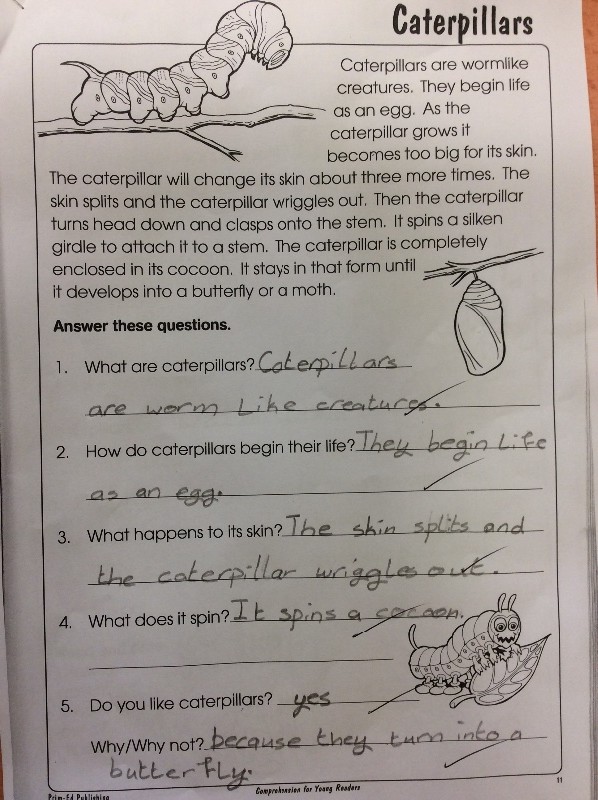 Caterpillars
Caterpillars are wormlike
creatures. They begin life
as an egg. As the
caterpillar grows it
becomes too big for its skin.
The caterpillar will change its skin about three more times. The
skin splits and the caterpillar wriggles out. Then the caterpillar
turns head down and clasps onto the stem. It spins a silken
girdle to attach it to a stem. The caterpillar is completely
enclosed in its cocoon. It stays in that form until
it develops into a butterfly or a moth.
Answer these questions.
1. What are caterpillars? Caterpillars
are worm like creatures.
2. How do caterpillars begin their life? They begin life
as an egg.
3. What happens to its skin? The skin splits and
the caterpillar wriggles out.
4. What does it spin? It spins a cocoon.
5. Do you like caterpillars? yes
Why/Why not? because they turn into a
butterfly.
Prim-Ed Publishing Comprehension for Young Readers 11